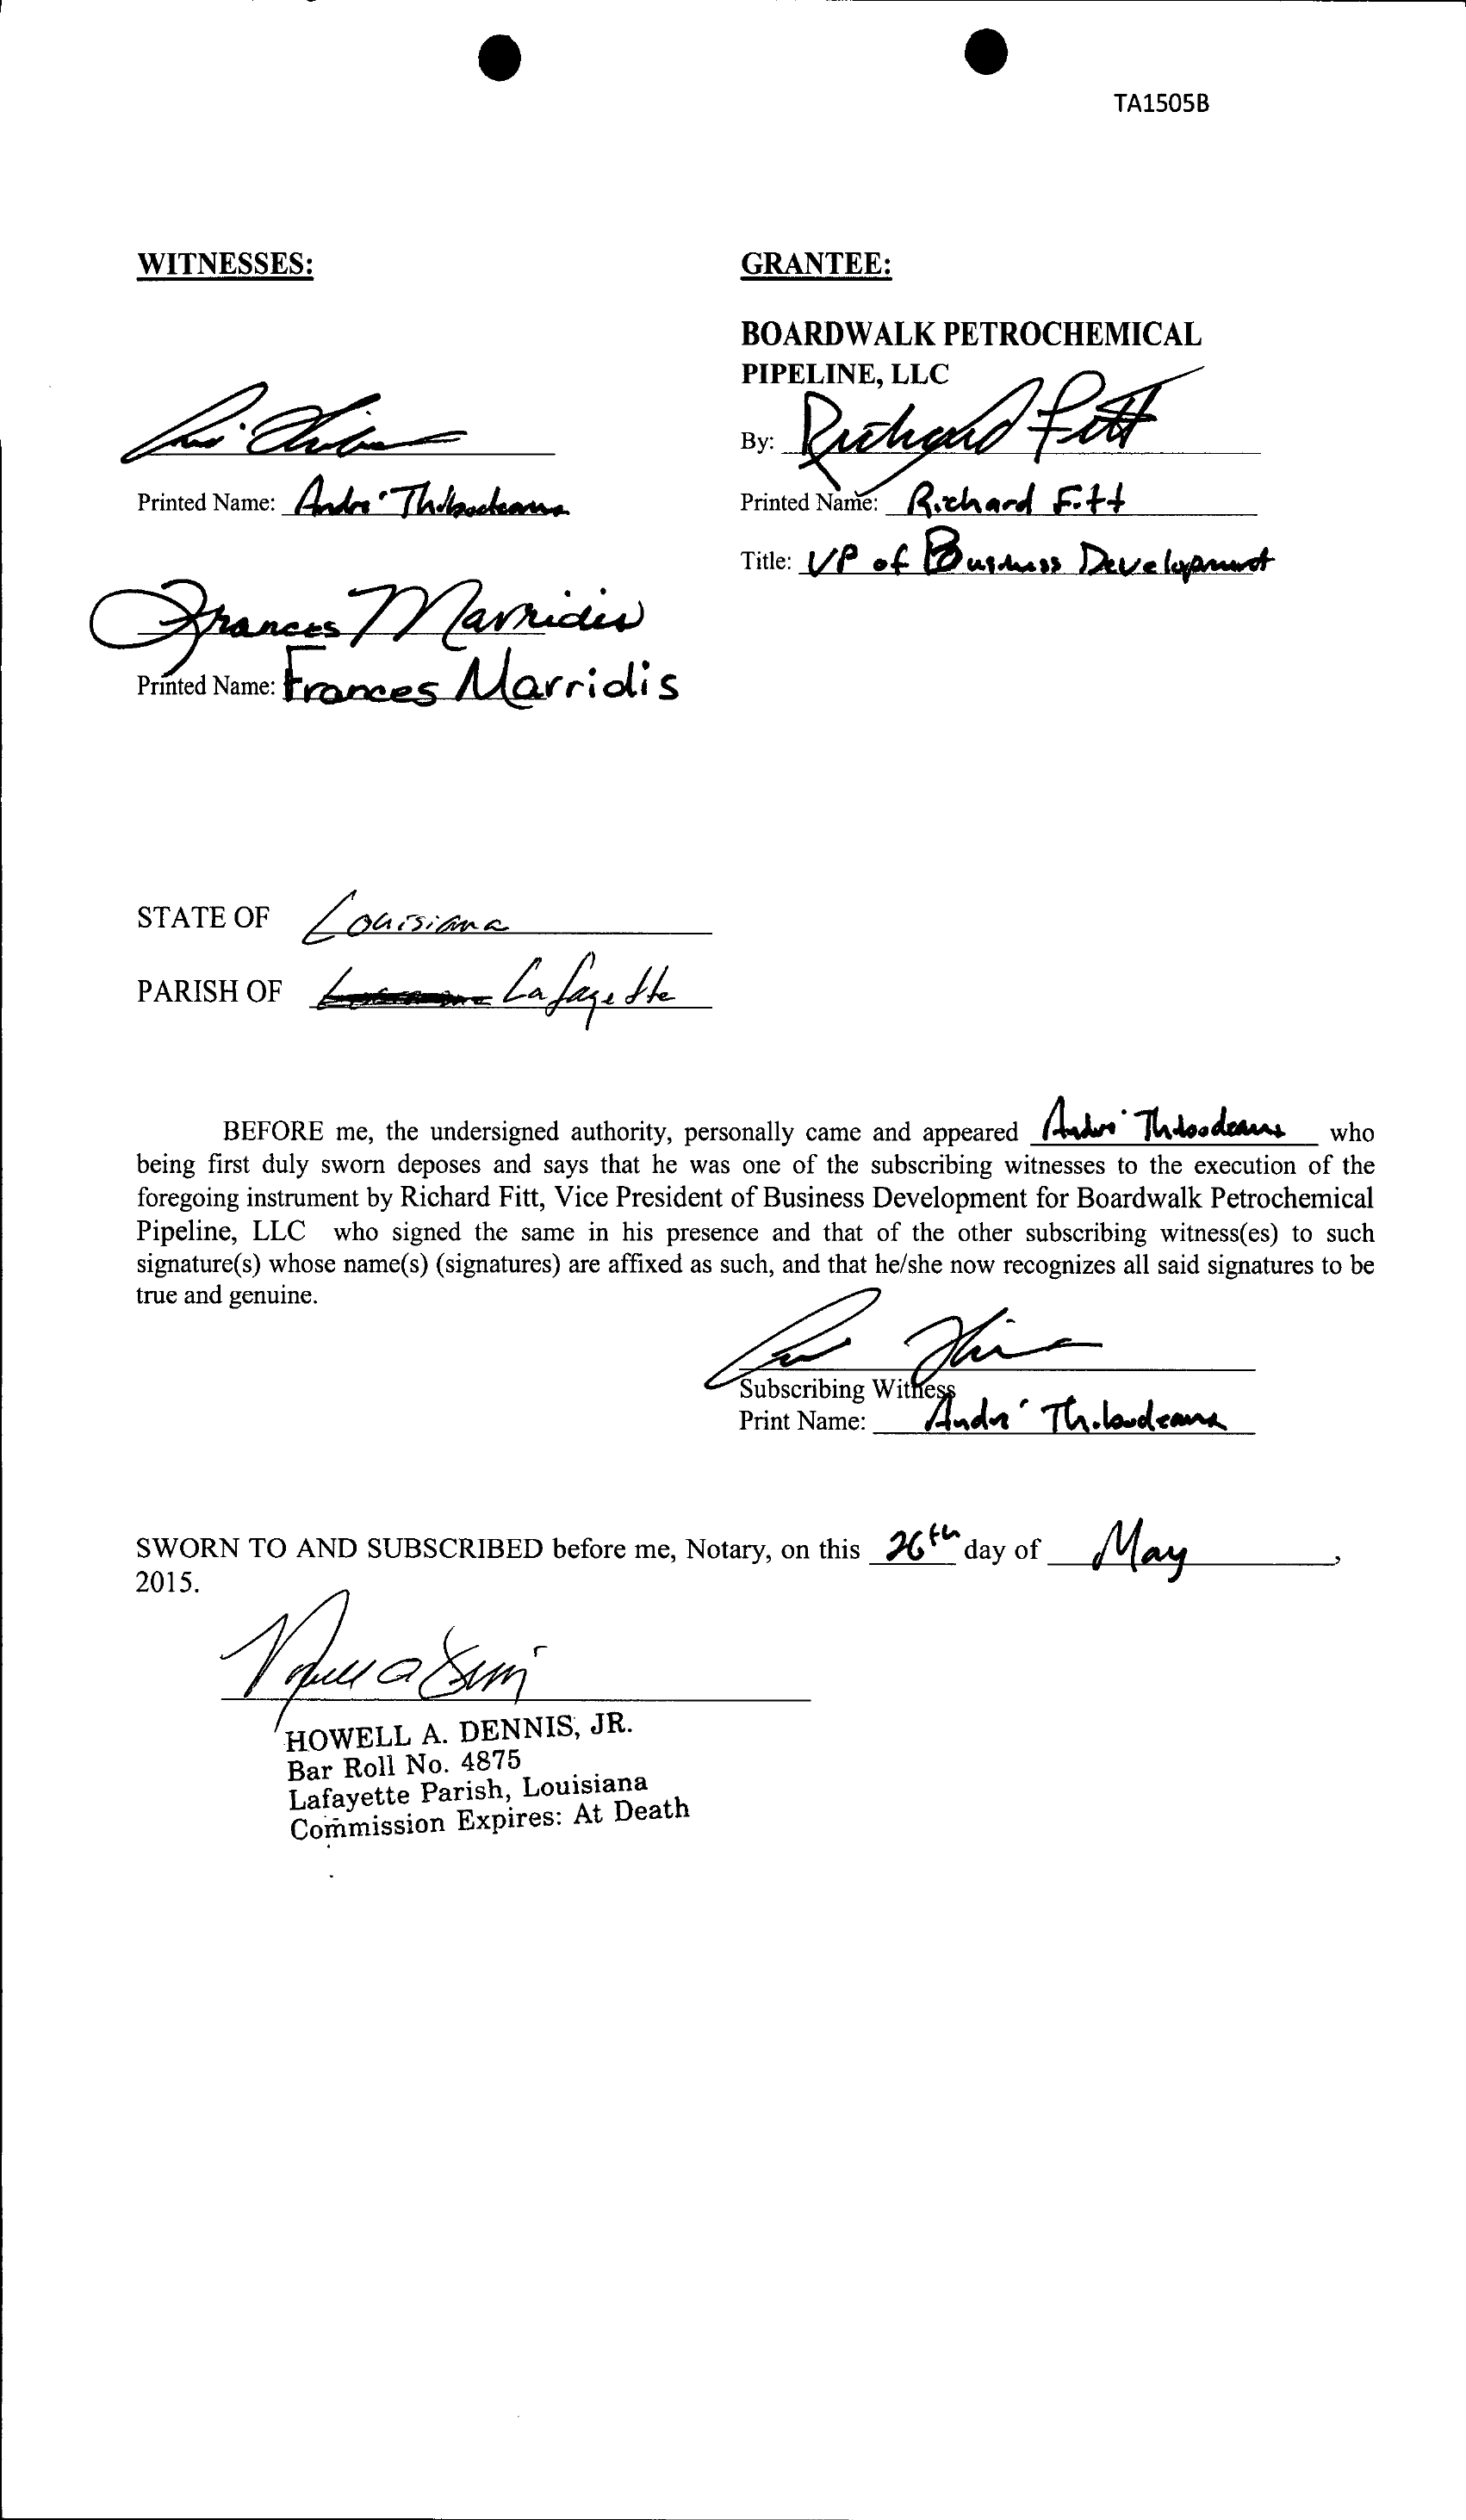 TA1505B
WITNESSES:
GRANTEE:
BOARDWALK PETROCHEMICAL
PIPELINE, LLC
By: Richard Fitt
Printed Name: André
Printed Name: Richard Fitt
Title: VP of Business Development
Frances Marridis
Printed Name: Frances Marridis
STATE OF Louisiana
PARISH OF Lafayette
BEFORE me, the undersigned authority, personally came and appeared André who
being first duly sworn deposes and says that he was one of the subscribing witnesses to the execution of the
foregoing instrument by Richard Fitt, Vice President of Business Development for Boardwalk Petrochemical
Pipeline, LLC who signed the same in his presence and that of the other subscribing witness(es) to such
signature(s) whose name(s) (signatures) are affixed as such, and that he/she now recognizes all said signatures to be
true and genuine.
Subscribing Witness
Print Name: André
SWORN TO AND SUBSCRIBED before me, Notary, on this 26th day of May,
2015.
HOWELL A. DENNIS, JR.
Bar Roll No. 4875
Lafayette Parish, Louisiana
Commission Expires: At Death